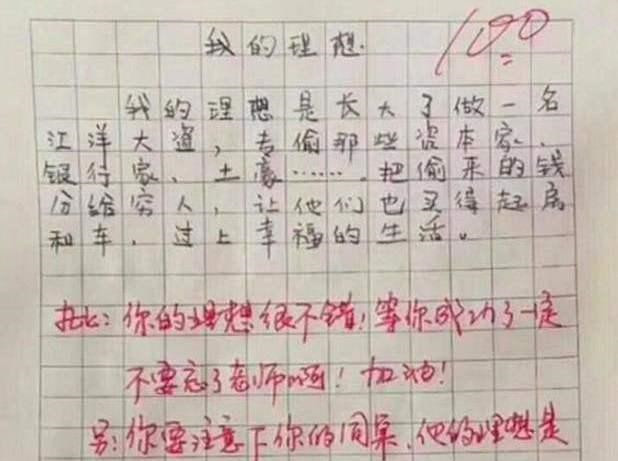 我的理想.
100
我的理想是长大了做一名
江洋大盗，专偷那些资本家、
银行家、土豪……，把偷来的钱
分给穷人，让他们也买得起房
和车，过上幸福的生活。
批：你的理想很不错！等你成功了一定
不要忘了老师啊！加油！
另：你要注意下你的同桌，他的理想是